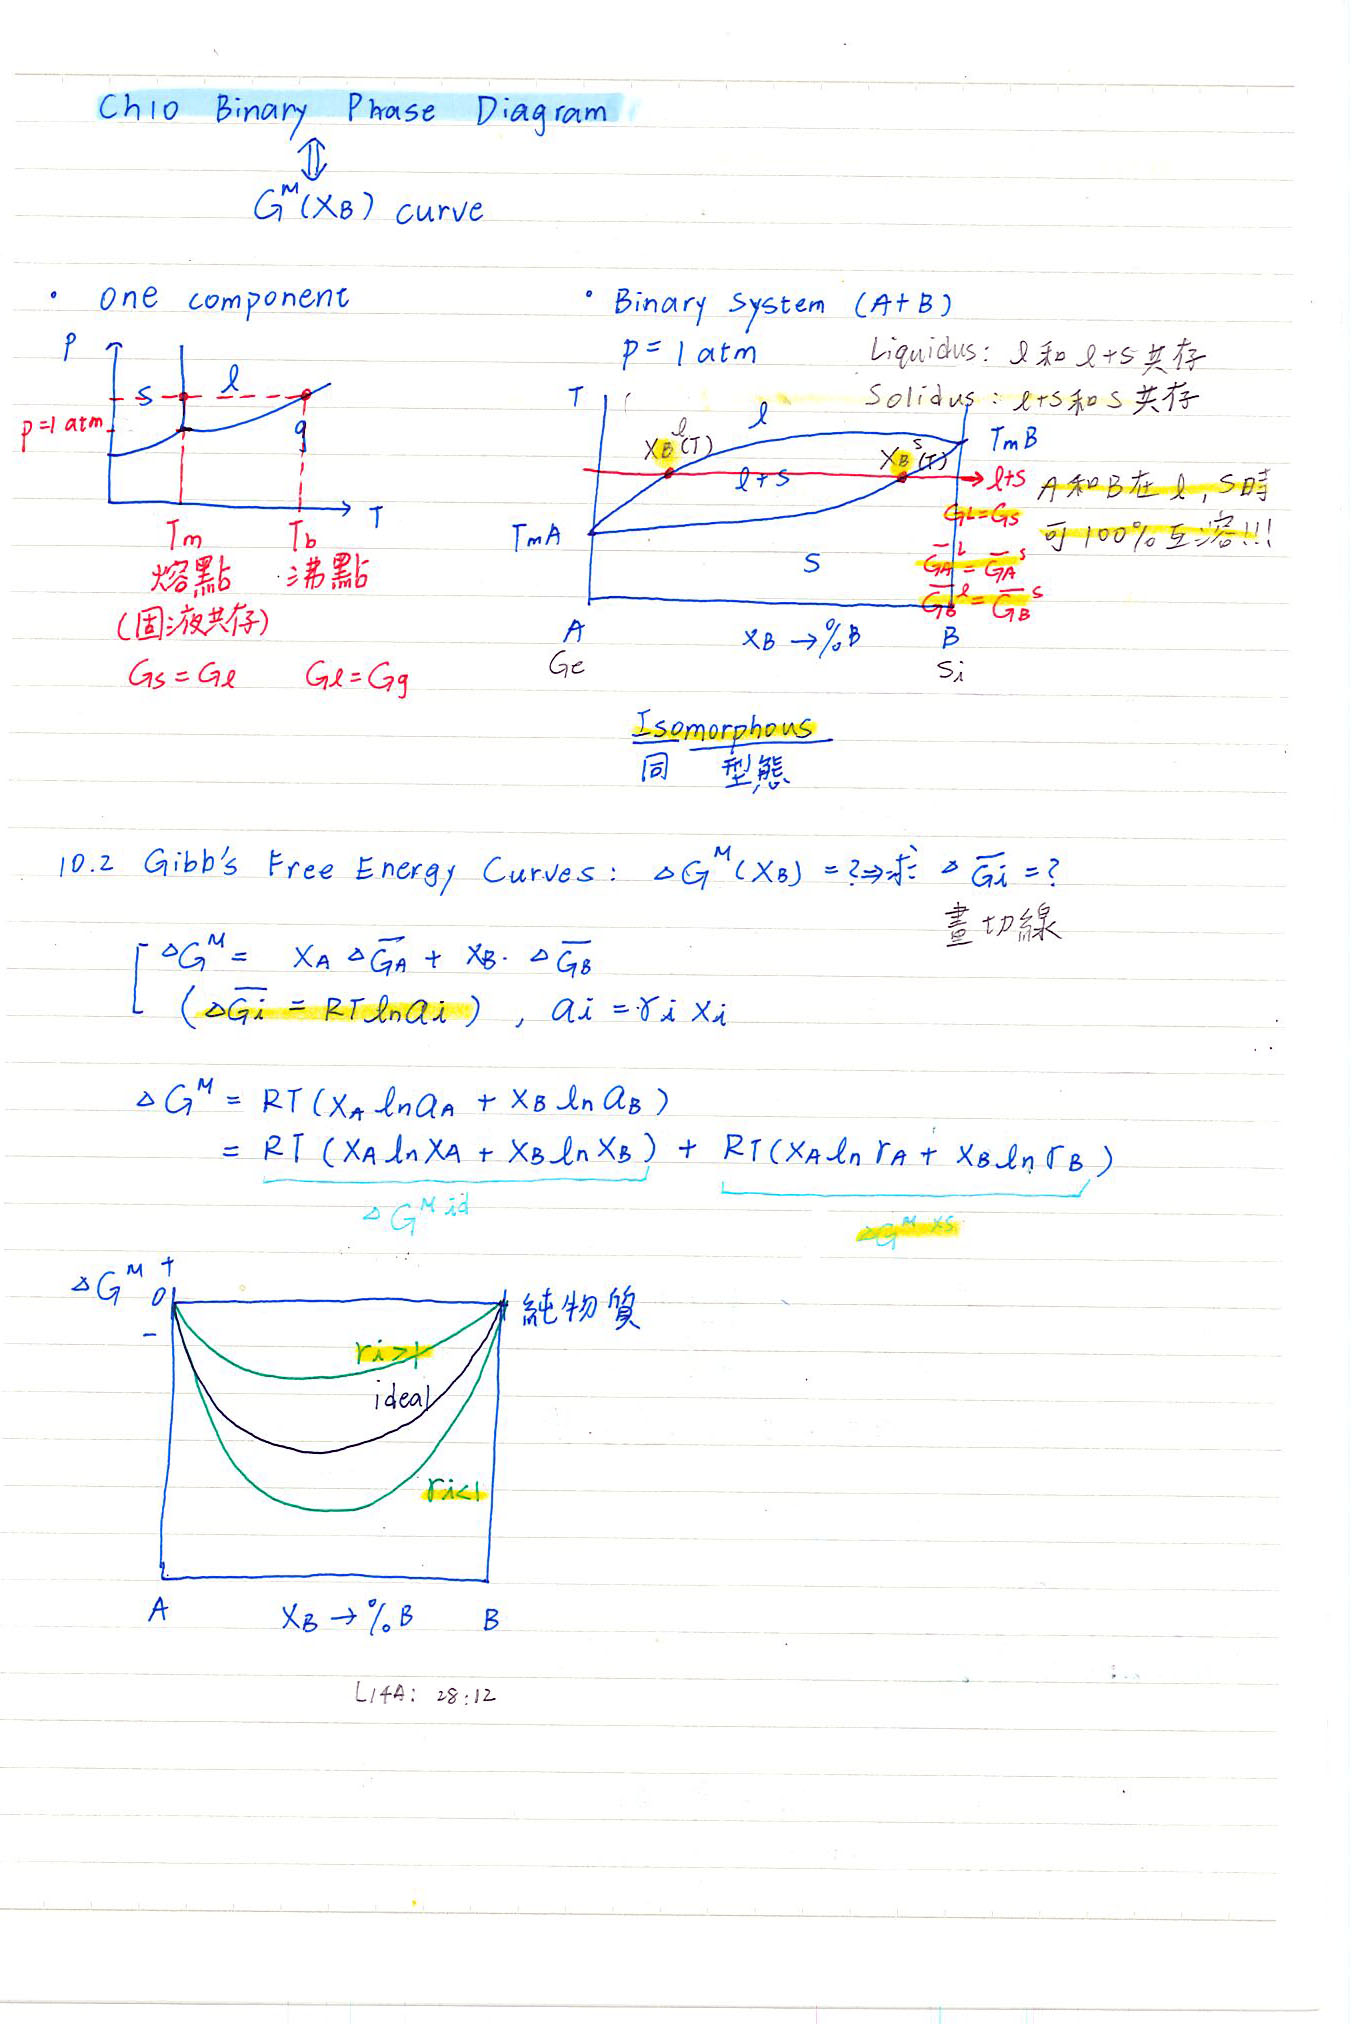 Ch10 Binary Phase Diagram
⇕
G^M(XB) curve
· one component
P
s
l
P=1 atm
g
T
Tm
Tb
熔點
沸點
(固液共存)
Gs=Gl
Gl=Gg
· Binary System (A+B)
P=1 atm
Liquidus: l和l+s共存
Solidus: l+s和s共存
T
l
TmB
XB^l(T)
XB^s(T)
l+s
→l+s
A和B在l,s時
可100%互溶!!!
GL=Gs
TmA
G̅A^L=G̅A^s
S
G̅B^l=G̅B^s
A
XB→%B
B
Ge
Si
Isomorphous
同 型態
10.2 Gibb's Free Energy Curves: ΔG^M(XB)=?⇒求 ΔG̅i=?
畫切線
ΔG^M= XA ΔG̅A + XB·ΔG̅B
(ΔG̅i = RT ln ai), ai = ri xi
ΔG^M = RT(XA ln aA + XB ln aB)
= RT(XA ln XA + XB ln XB) + RT(XA ln rA + XB ln rB)
ΔG^M id
ΔG^M xs
ΔG^M +
0
純物質
-
ri>1
ideal
ri<1
A
XB→%B
B
L14A: 28:12